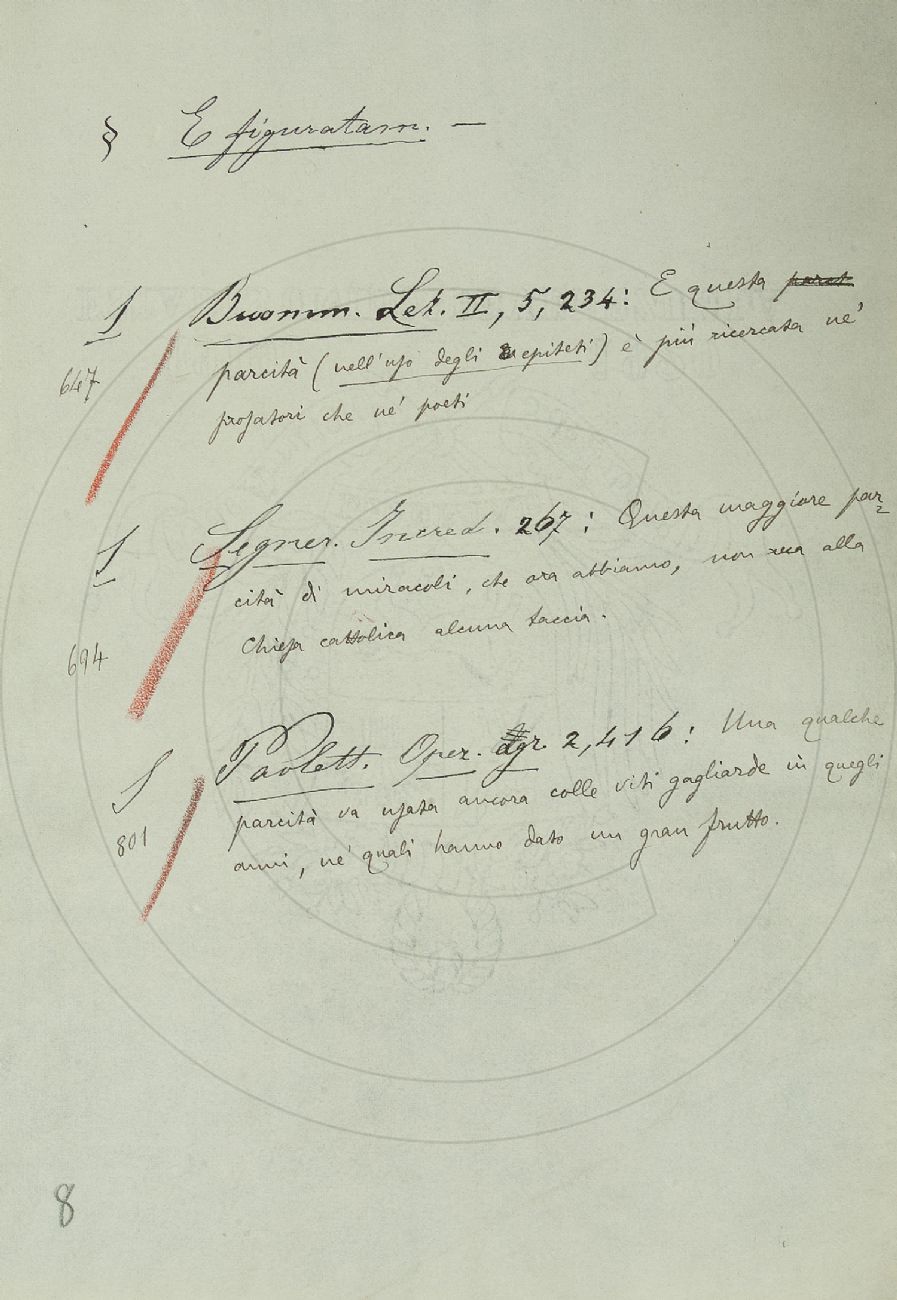 § E figuratam. —
1 Buomm. Lez. II, 5, 234: E questa
647 parcità (nell'uso degli epiteti) è più ricercata ne'
prosatori che ne' poeti
1 Segner. Incred. 267: Questa maggiore par=
cità di miracoli, che ora abbiamo, non reca alla
694 Chiesa cattolica alcuna taccia.
1 Paolett. Oper. agr. 2,416: Una qualche
parcità va usata ancora colle viti gagliarde in quegli
801 anni, ne' quali hanno dato un gran frutto.
8